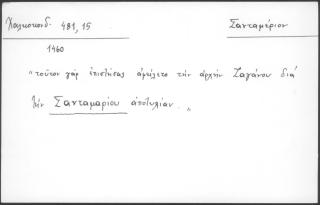 Χαλκοκονδ. 481, 15
Σανταμέριον
1460
"τοῦτον γὰρ ἐπιστήσας ἀφήλετο τὴν ἀρχὴν Ζαγάνου διὰ
τὴν Σανταμαρίου ἀποτυχίαν."